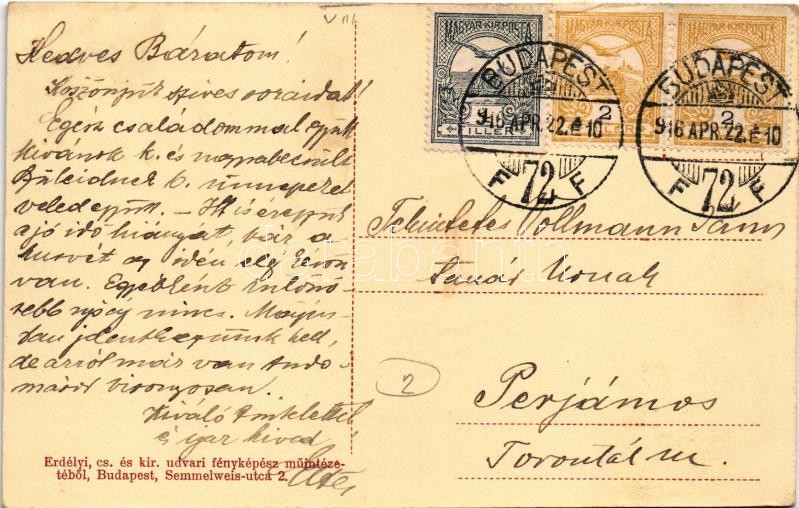 VIII
Kedves Bárátom!
Köszönjük szives soraidat!
Egész családommal együtt
kivánok k. és nagyrabecsült
Szüleidnek b. ünnepeket
veled együtt. – Itt is érezzük
a jó idő hiányát, bár a
husvét az idén elég későn
van. Egyébként különö-
sebb ujság nincs. Május-
ban jelentkeznünk kell,
de erről már van tudo-
másod bizonyosan.
Kiváló tisztelettel
és igaz hived
MAGYAR·KIR·POSTA
FILLÉR
MAGYAR·KIR·POSTA
2
MAGYAR·KIR·POSTA
2
BUDAPEST
916 APR.22.É-10
F 72 F
BUDAPEST
916 APR.22.É-10
F 72 F
Tekintetes Vollmann János
tanár Urnak
2
Perjámos
Torontál m.
Erdélyi, cs. és kir. udvari fényképész műintéze-
téből, Budapest, Semmelweis-utca 2.
darabanth